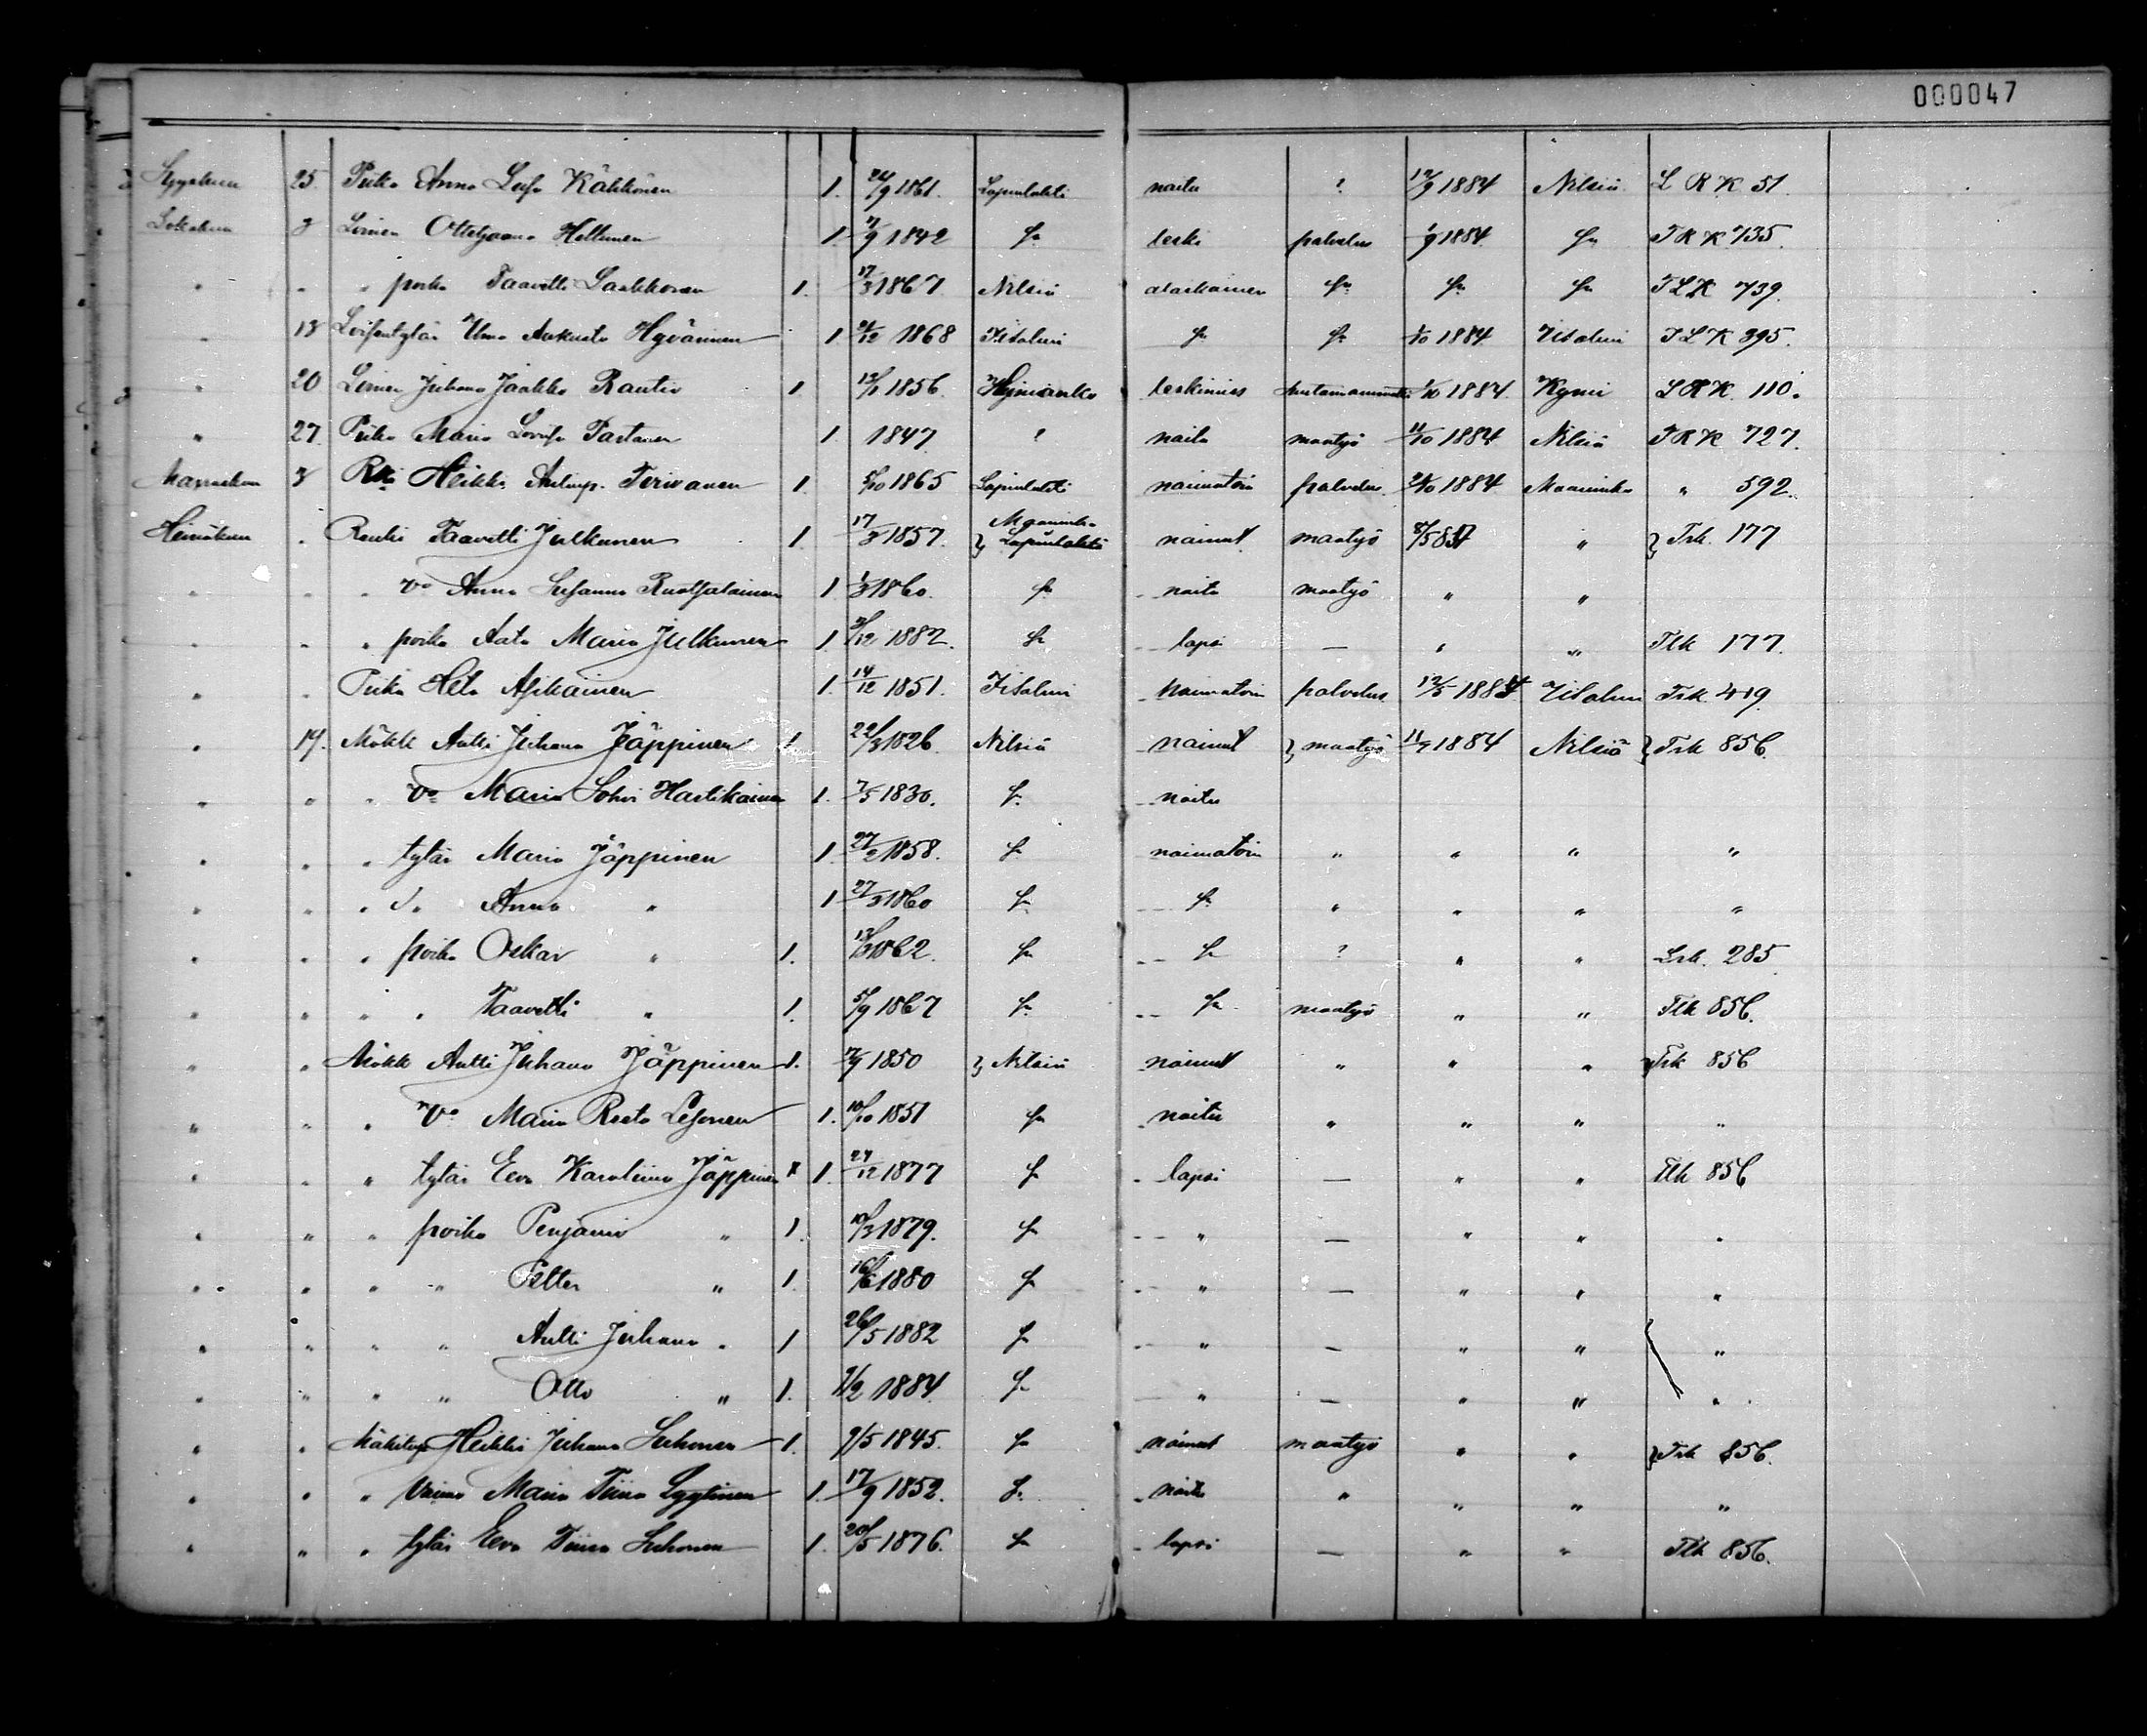 000047
Syyskuu 25. Piika Anna Loviisa Kähkönen 1. 24/9 1861. Lapinlahti naitu ? 12/9 1884 Nilsiä L R K 51.
Lokakuu 3 Loinen Hellman 1. 17/9 1842 leski palvelus 1/9 1884 T R K 735.
" " " poika Taavetti Laakkonen 1. 17/3 1867 Nilsiä alaikäinen T L K 739.
" 13 Loisentytär Hyvärinen 1 21/12 1868 Iisalmi 1/10 1884 Iisalmi T L K 395.
" 20 Loinen Juhana Jaakko Rautio 1. 1856. leskimies 1/10 1884. Kymi L R K. 110.
" 27. Piika Maria Tastanen 1. 1847. ? naitu maatyö 11/10 1884 Nilsiä T R K 727.
Marraskuu 3 Heikki Tirivanen 1. 5/10 1865 Lapinlahti naimatoin palvelus 1884 Maaninka " 592.
Heinäkuu " Renki Taavetti Julkunen 1. 17/3 1857. Maaninka Lapinlahti nainut maatyö " } Trk. 177
" " " vo Anna Susanna Ruotsalainen 1. 1/3 1860. naitu maatyö " "
" " " poika Aatu Mauno Julkunen 1. 3/12 1882. lapsi — " " Tlk 177.
" " Piika Heta Asikainen 1. 14/12 1851. Iisalmi naimatoin palvelus 12/5 1884 Iisalmi Trk. 419.
" 19. Mökk Antti Juhana Jäppinen 1. 22/3 1826. Nilsiä nainut } maatyö 11/9 1884 Nilsiä } Trk 856.
" " " vo Maria Sohvi Hartikainen 1. 7/5 1830. naitu
" " " tytär Maria Jäppinen 1. 27/2 1858. naimatoin " " " "
" " " Anna " 1 27/3 1860 " " " "
" " " poika Oskar " 1. 13/3 1862. ? " " Lrk. 285
" " " " Taavetti " 1. 5/9 1867 maatyö " " Tlk 856.
" " Mökk Antti Juhana Jäppinen 1. 7/9 1850 } Nilsiä nainut " " " Trk 856
" " " vo Maria Reeta Lesonen 1. 10/10 1851 naitu " " " "
" " " tytär Eeva Karoliina Jäppinen 1. 27/12 1877 lapsi — " " Tlk 856
" " " poika Penjami " 1. 10/3 1879. " — " " "
" " " " Petter " 1. 16/6 1880 " — " " "
" " " " Antti Juhana " 1 26/5 1882 " — " " "
" " " " Otto " 1. 9/2 1884. " — " " "
" " Mäkitup Heikki Juhana Suhonen 1. 9/5 1845. nainut maatyö " " } Trk 856.
" " " Vaimo Maria Tiina Lyytinen 1. 17/9 1852. naitu " " " "
" " " tytär Eeva Tiina Suhonen 1. 20/5 1876. lapsi — " " Tlk 856.